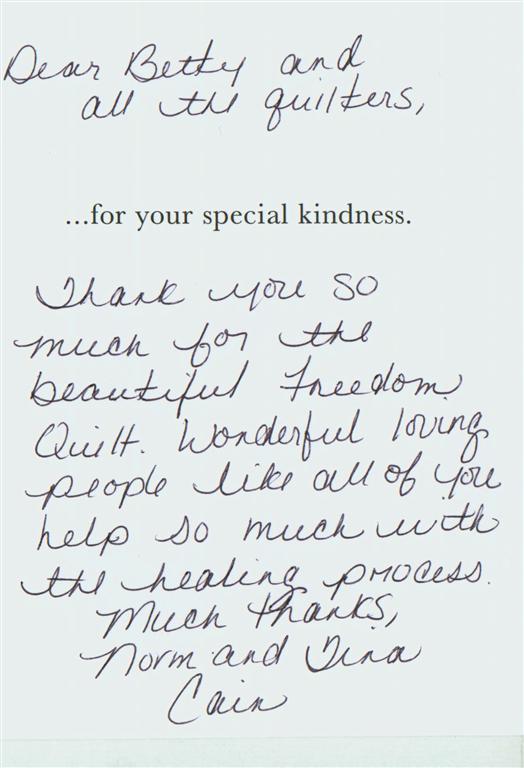 Dear Betty and
all the quilters,
...for your special kindness.
Thank you so
much for the
beautiful Freedom
Quilt. Wonderful loving
people like all of you
help so much with
the healing process.
Much thanks,
Norm and Tina
Cain